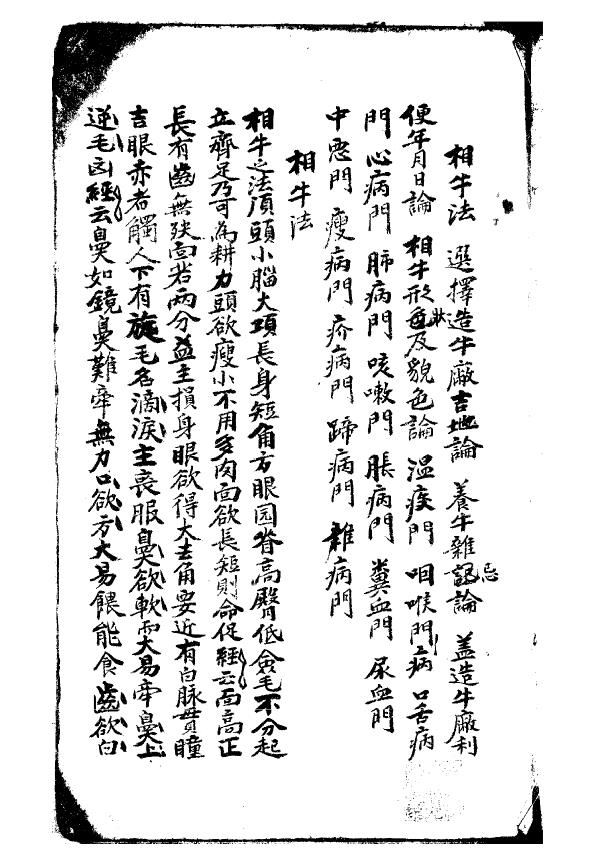 相牛法 選擇造牛廠吉地論 養牛雜記忌論 盖造牛廠利
便年月日論 相牛形色狀及貌色論 温疾門 咽喉門病 口舌病
門 心病門 肺病門 咳嗽門 脹病門 糞血門 尿血門
中惡門 瘦病門 疥病門 蹄病門 雜病門
相牛法
相牛之法頂頭小腦大項長身短角方眼园脊高臀低食毛不分起
立齊足乃可為耕力頭欲瘦小不用多肉面欲長短則命促經云面高正
長有齒無殃當若两分益主損身眼欲得大去角要近有白脉貫瞳
吉眼赤者觸人下有旋毛名滴淚主喪服鼻欲軟而大易牵鼻上
逆毛凶經云鼻如鏡鼻難牵無力口欲方大易餵能食齒欲白